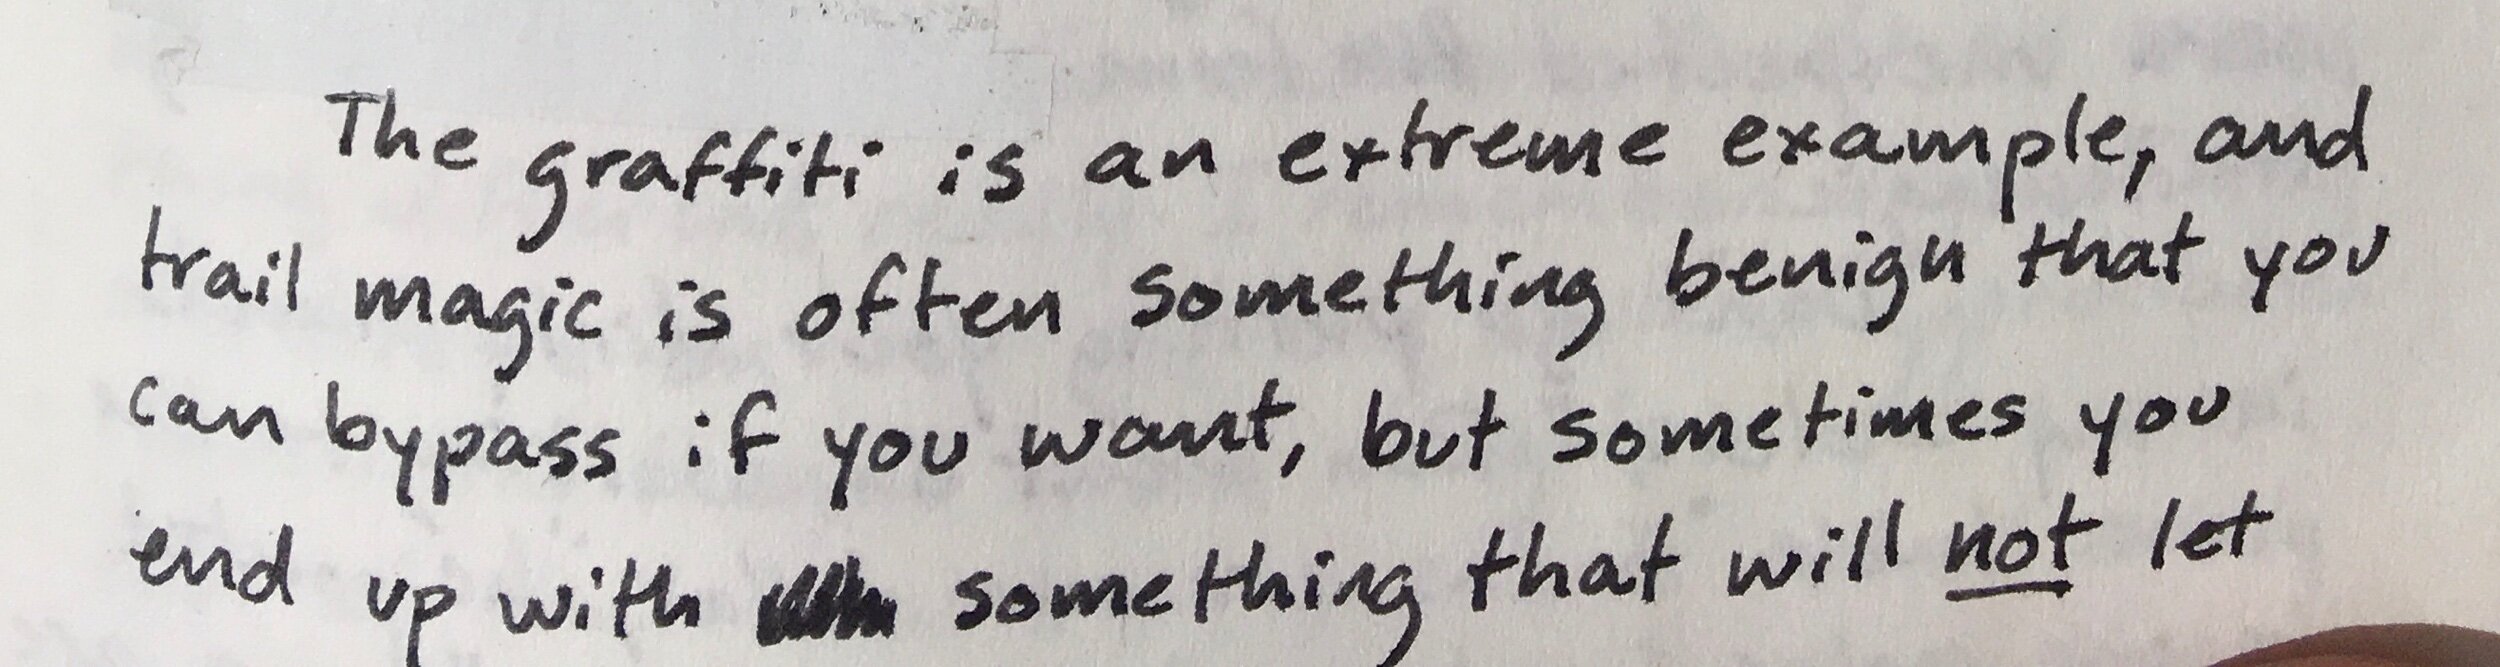 The graffiti is an extreme example, and
trail magic is often something benign that you
can bypass if you want, but sometimes you
end up with something that will not let